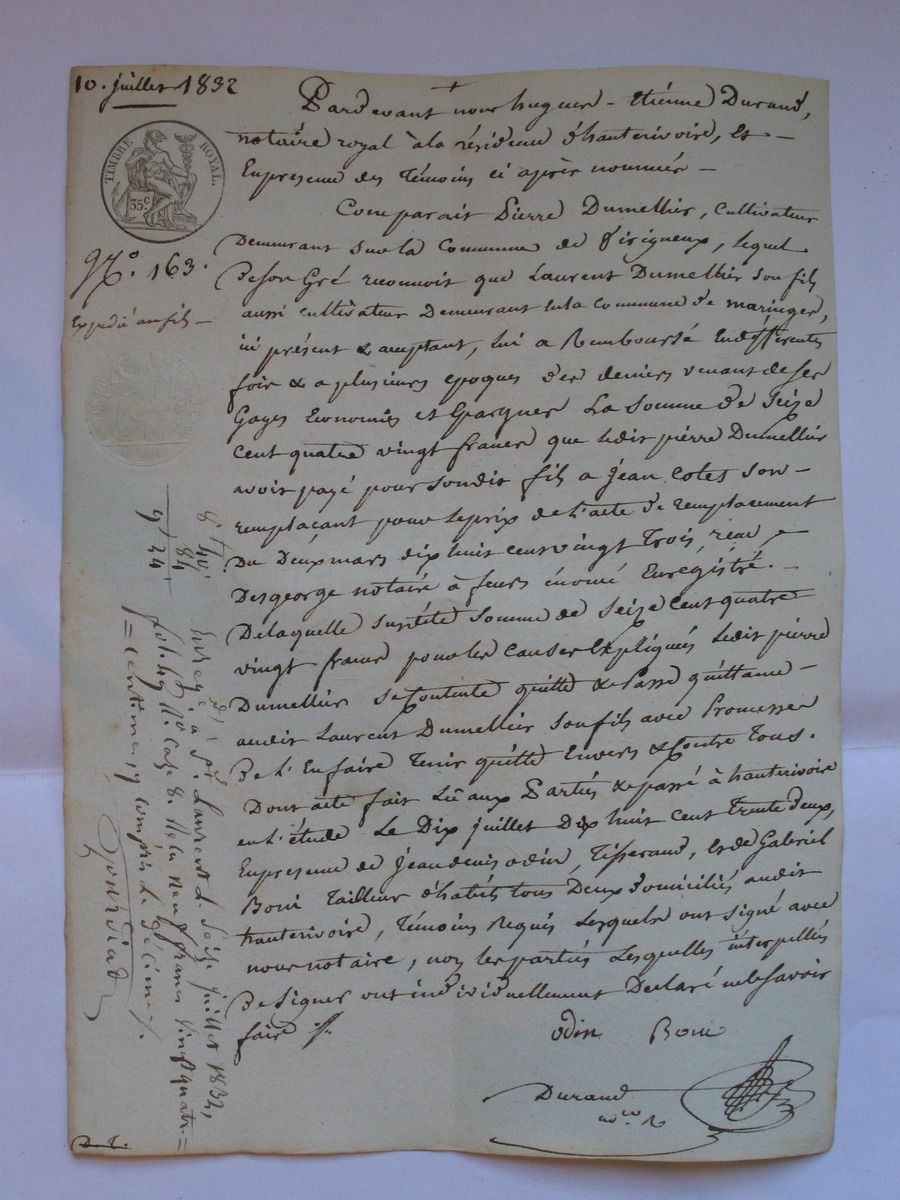 10. juillet 1832
TIMBRE ROYAL.
35c
No. 163.
Expédié au fils
Pardevant nous hugues - étienne Durand,
notaire royal à la résidence d'hauterivoire, et
En presence des Témoins ci après nommés
Comparait Pierre Dumellier, Cultivateur
Demeurant sur la Commune de Virigneux, lequel
De son Gré reconnoit que Laurent Dumellier son fils
aussi cultivateur Demeurant en la Commune de maringes,
ici présent & acceptant, lui a Remboursé En differentes
fois & a plusieurs epoques des deniers venant de ses
Gages Economies et Epargnes La Somme De Seize
Cent quatre vingt francs que ledit pierre Dumellier
avoit payé pour sondit fils a jean Cotes son
remplaçant pour le prix de l'acte de remplacement
Du Deux mars dix huit cent vingt Trois, reçu
Desgeorge notaire à feurs énoncé Enregistré.
De laquelle susdite Somme de Seize Cent quatre
vingt francs pour les Causes Expliqués ledit pierre
Dumellier se Contente quitte & Passe quittance
audit Laurent Dumellier son fils avec Promesse
De l'En faire Tenir quitte Envers & Contre Tous.
Dont acte fait Lu aux Parties & passé à hauterivoire
en l'étude Le Dix juillet Dix huit Cent Trente deux,
En presence de jean denis odin, Tisserand, et de Gabriel
Boni Tailleur d'habits tous Deux domiciliés audit
hauterivoire, Témoins Requis Lesquels ont signé avec
nous notaire, non les parties Lesquelles interpellés
De Signer ont individuellement Declaré ne le Savoir
faire
odin Boni
Durand
84
Enreg. à St. Laurent le Seize juillet 1832,
neuf francs vingt quatre
centimes, y compris le décime.